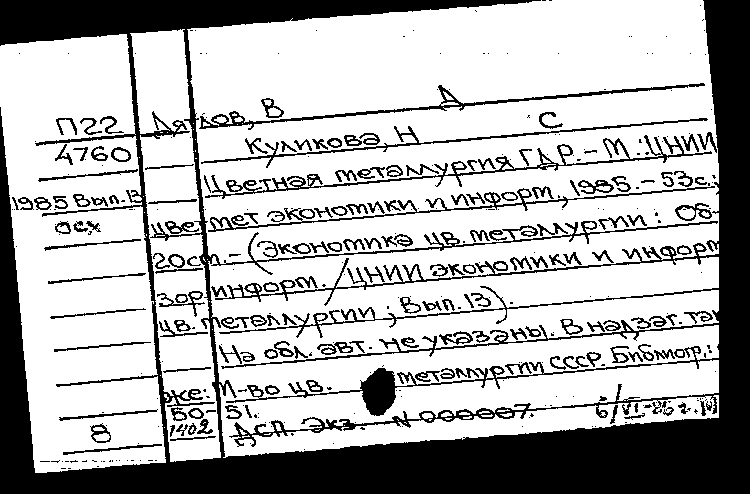 Д
П22 Дятлов, В
С
4760 Куликова, Н
Цветная металлургия ГДР. - М.: ЦНИИ
1985 Вып. 13
цветмет экономики и информ., 1985. - 53с.;
осх
20см. - (Экономика цв. металлургии: Об-
зор информ. / ЦНИИ экономики и информ
цв. металлургии; Вып. 13).
На обл. авт. не указаны. В надзаг. так
же: М-во цв. металлургии СССР. Библиогр.:
50-51.
8 1402 ДСП. Экз. N 000007. 6/VI-86 г.